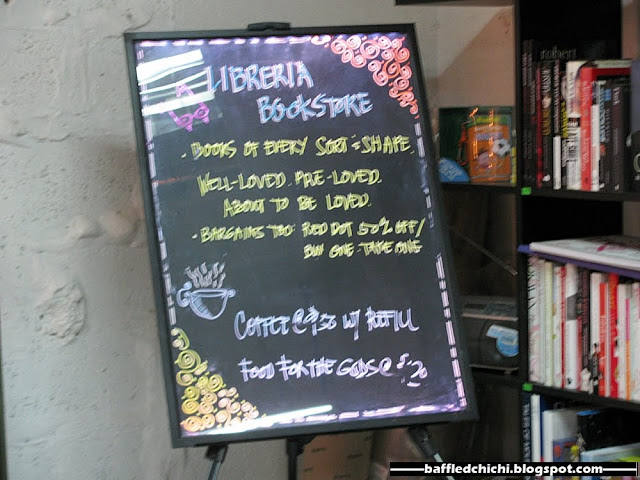 LIBRERIA
BOOKSTORE
- BOOKS OF EVERY SORT & SHAPE.
WELL-LOVED. PRE-LOVED.
ABOUT TO BE LOVED.
- BARGAINS TOO: RED DOT 50% OFF/
BUY ONE-TAKE ONE
COFFEE @ W/ REFILL
FOOD FOR THE GODS @
robert
baffledchichi.blogspot.com